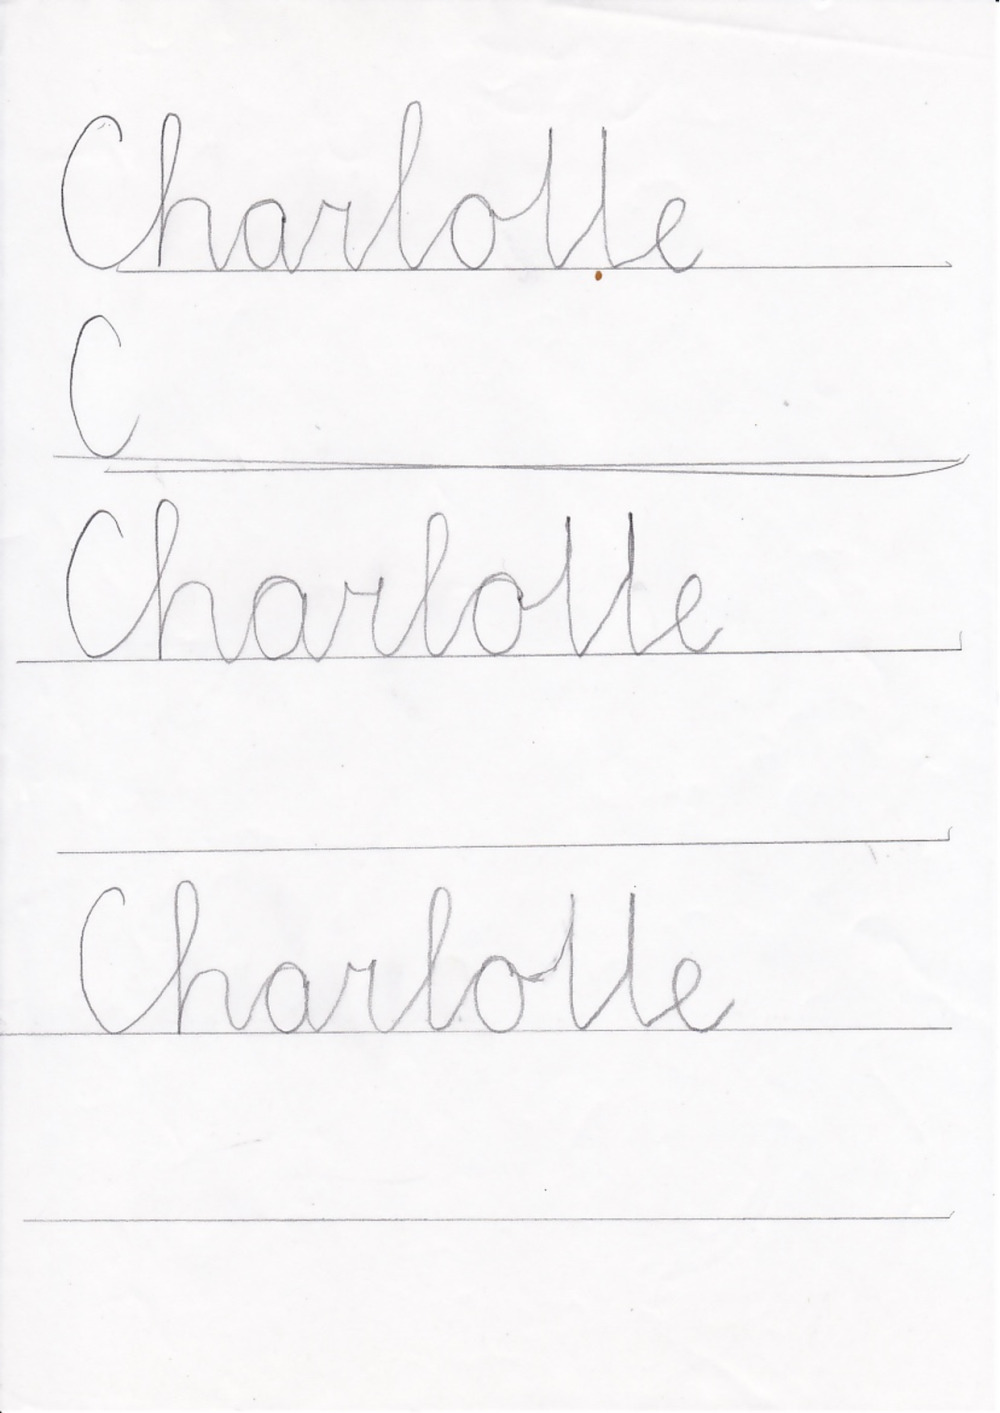 Charlotte
C
Charlotte
Charlotte